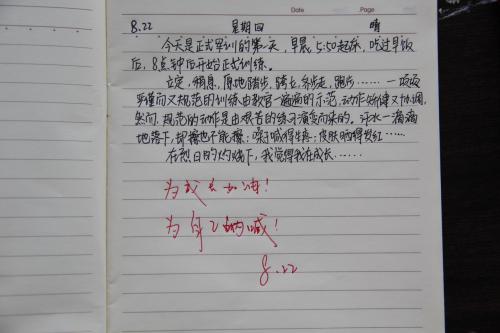 Date Page
8.22 星期四 晴
今天是正式军训的第一天,早晨5:50起床,吃过早饭
后,8点钟后开始正式训练。
立定,稍息,原地踏步,骑士,齐步走,跑步……一项项
严谨而又规范的训练由教官一遍遍的示范,动作矫健又协调,
然而,规范的动作是由艰苦的练习演变而来的。汗水一滴滴
地落下,却擦也不能擦;嗓子喊得生疼;皮肤晒得发红……
在烈日的灼烧下,我觉得我在成长……
为成长加油!
为自己呐喊!
8.22